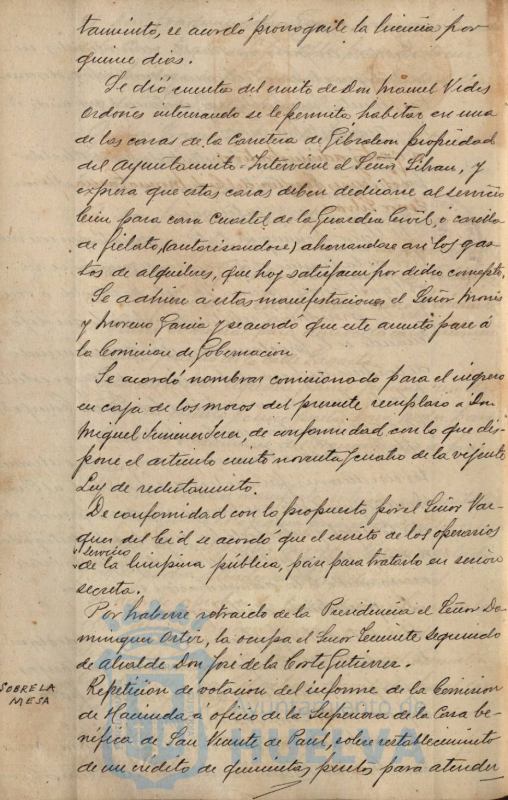 tamiento, se acordó prorrogarle la licencia por
quince dias.
Se dió cuenta del escrito de Don Manuel Vides
Ordoñes interesando se le permita habitar en una
de las casas de la Carretera de Gibraleon propiedad
del Ayuntamiento. Interviene el Señor y
expresa que estas casas deben dedicarse al servicio
bien para casa Cuartel de la Guardia Civil, ó caseta
de fielato, (autorisandose) ahorrandose asi los gas-
tos de alquileres, que hoy satisfacen por dicho concepto.
Se adhiere á estas manifestaciones el Señor
y Moreno Garcia y se acordó que este asunto pase á
la Comision de Gobernacion
Se acordó nombrar comisionado para el ingreso
en caja de los mozos del presente remplazo á Don
Miguel Jimenez de conformidad con lo que dis-
pone el articulo ciento noventa y cuatro de la vijente
Ley de reclutamiento.
De conformidad con lo propuesto por el Señor Vaz-
quez del Cid se acordó que el escrito de los operarios
servicio
de la limpieza pública, pase para tratarlo en sesion
secreta.
Por haberse retraido de la Presidencia el Señor Do-
minguez Ortiz, la ocupa el Señor Teniente segundo
de alcalde Don José de la Corte Gutierrez.
SOBRE LA
MESA
Repeticion de votacion del informe de la Comision
de Hacienda a oficio de la Superiora de la Casa be-
néfica de San Vicente de Paul, sobre restablecimiento
de un crédito de quinientas pesetas para atender
Ayuntamiento de
HUELVA